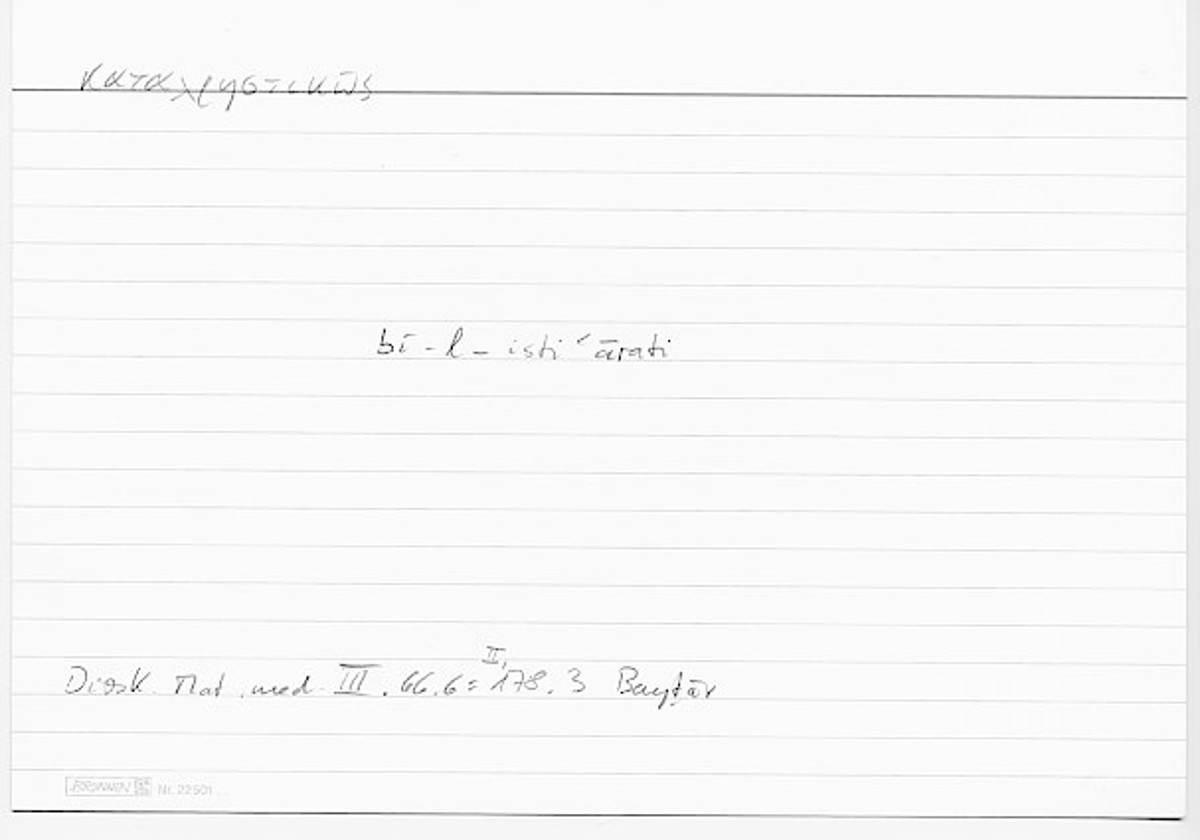 καταχρηστικῶς
bi-l-istiʿārati
Diosk. Mat. med. III. 66.6 = II, 178.3 Bayṭār
BRUNNEN Nr. 22501